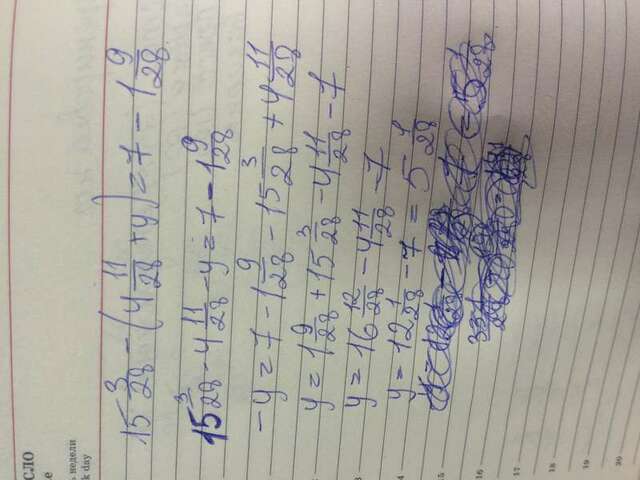 СЛО
е
ь недели
k day
15 3/28 - (4 11/28 + y) = 7 - 1 9/28
15 3/28 - 4 11/28 - y = 7 - 1 9/28
- y = 7 - 1 9/28 - 15 3/28 + 4 11/28
y = 1 9/28 + 15 3/28 - 4 11/28 - 7
y = 16 12/28 - 4 11/28 - 7
y = 12 1/28 - 7 = 5 1/28
15
16
17
18
19
20